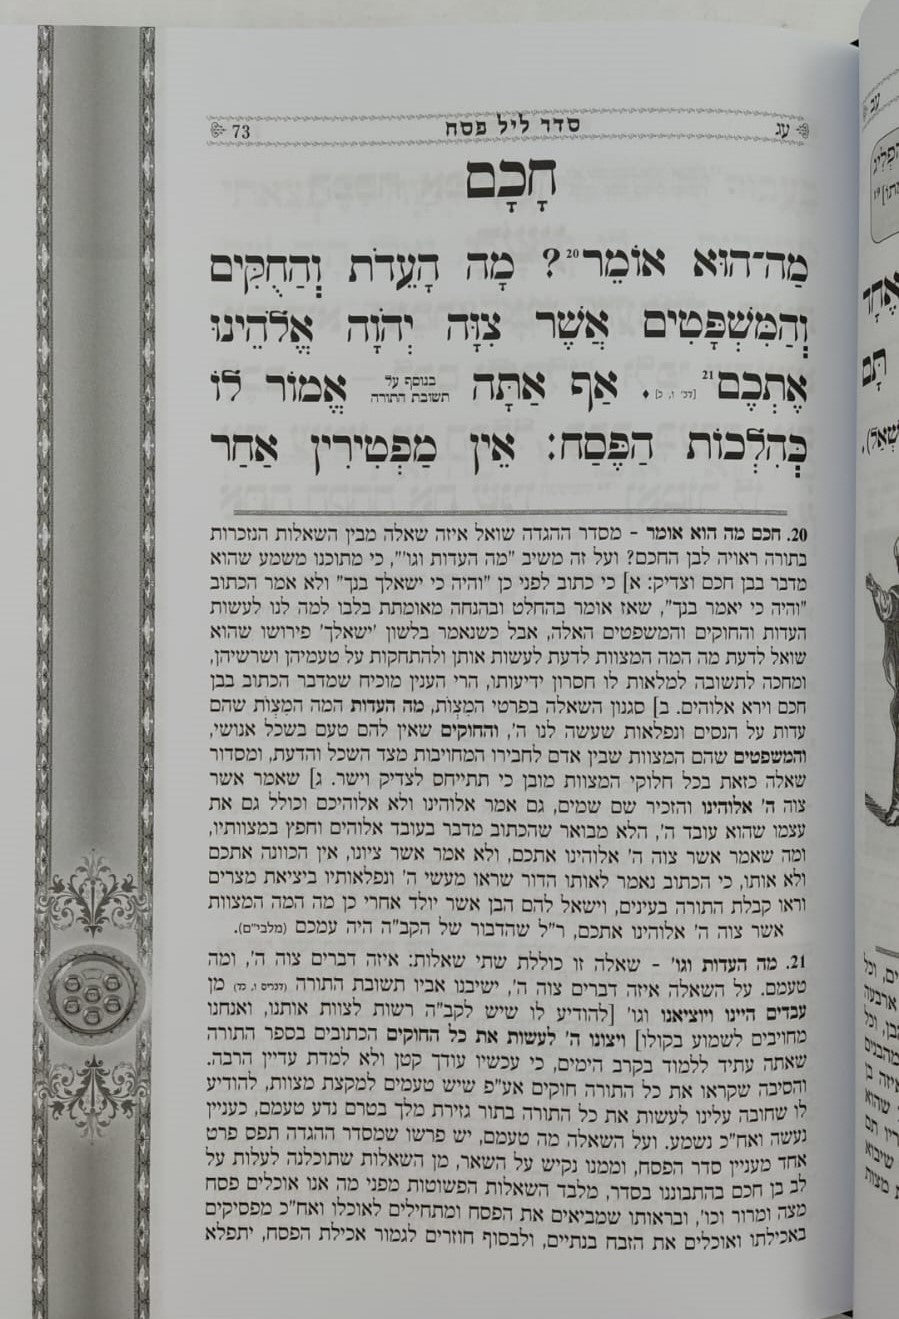 עג סדר ליל פסח 73
חָכָם
מַה־הוּא אוֹמֵר20? מָה הָעֵדֹת וְהַחֻקִּים
וְהַמִּשְׁפָּטִים אֲשֶׁר צִוָּה יְהֹוָה אֱלֹהֵינוּ
אֶתְכֶם21 [דב׳ ו, כ]. אַף אַתָּה בנוסף על תשובת התורה אֱמוֹר לוֹ
כְּהִלְכוֹת הַפֶּסַח: אֵין מַפְטִירִין אַחַר
20. חכם מה הוא אומר - מסדר ההגדה שואל איזה שאלה מבין השאלות הנזכרות
בתורה ראויה לבן החכם? ועל זה משיב "מה העדות וגו'", כי מתוכנו משמע שהוא
מדבר בבן חכם וצדיק: א] כי כתוב לפני כן "והיה כי ישאלך בנך" ולא אמר הכתוב
"והיה כי יאמר בנך", שאז אומר בהחלט ובהנחה מאומתת בלבו למה לנו לעשות
העדות והחוקים והמשפטים האלה, אבל כשנאמר בלשון 'ישאלך' פירושו שהוא
שואל לדעת מה המה המצוות לדעת לעשות אותן ולהתחקות על טעמיהן ושרשיהן,
ומחכה לתשובה למלאות לו חסרון ידיעותו, הרי הענין מוכיח שמדבר הכתוב בבן
חכם וירא אלוהים. ב] סגנון השאלה בפרטי המִצְוֹת, מה העדות המה המִצְוֹת שהם
עדות על הנסים ונפלאות שעשה לנו ה', והחוקים שאין להם טעם בשכל אנושי,
והמשפטים שהם המצוות שבין אדם לחבירו המחויבות מצד השכל והדעת, ומסדור
שאלה כזאת בכל חלוקי המצוות מובן כי תתייחס לצדיק וישר. ג] שאמר אשר
צוה ה' אלוהינו והזכיר שם שמים, גם אמר אלוהינו ולא אלוהיכם וכולל גם את
עצמו שהוא עובד ה', הלא מבואר שהכתוב מדבר בעובד אלוהים וחפץ במצוותיו,
ומה שאמר אשר צוה ה' אלוהינו אתכם, ולא אמר אשר ציונו, אין הכוונה אתכם
ולא אותו, כי הכתוב נאמר לאותו הדור שראו מעשי ה' ונפלאותיו ביציאת מצרים
וראו קבלת התורה בעינים, וישאל להם הבן אשר יולד אחרי כן מה המה המצוות
אשר צוה ה' אלוהינו אתכם, ר"ל שהדבור של הקב"ה היה עמכם (מלבי"ם).
21. מה העדות וגו' - שאלה זו כוללת שתי שאלות: איזה דברים צוה ה', ומה
טעמם. על השאלה איזה דברים צוה ה', ישיבנו אביו תשובת התורה (דברים ו, כד) מן
עבדים היינו ויוציאנו וגו' [להודיע לו שיש לקב"ה רשות לצוות אותנו, ואנחנו
מחויבים לשמוע בקולו] ויצונו ה' לעשות את כל החוקים הכתובים בספר התורה
שאתה עתיד ללמוד בקרב הימים, כי עכשיו עודך קטן ולא למדת עדיין הרבה.
והסיבה שקראו את כל התורה חוקים אע"פ שיש טעמים למקצת מצוות, להודיע
לו שחובה עלינו לעשות את כל התורה בתור גזירת מלך בטרם נדע טעמם, כענין
נעשה ואח"כ נשמע. ועל השאלה מה טעמם, יש פרשו שמסדר ההגדה תפס פרט
אחד מעניין סדר הפסח, וממנו נקיש על השאר, מן השאלות שתוכלנה לעלות על
לב בן חכם בהתבוננו בסדר, מלבד השאלות הפשוטות מפני מה אנו אוכלים פסח
מצה ומרור וכו', ובראותו שמביאים את הפסח ומתחילים לאוכלו ואח"כ מפסיקים
באכילתו ואוכלים את הזבח בנתיים, ולבסוף חוזרים לגמור אכילת הפסח, יתפלא